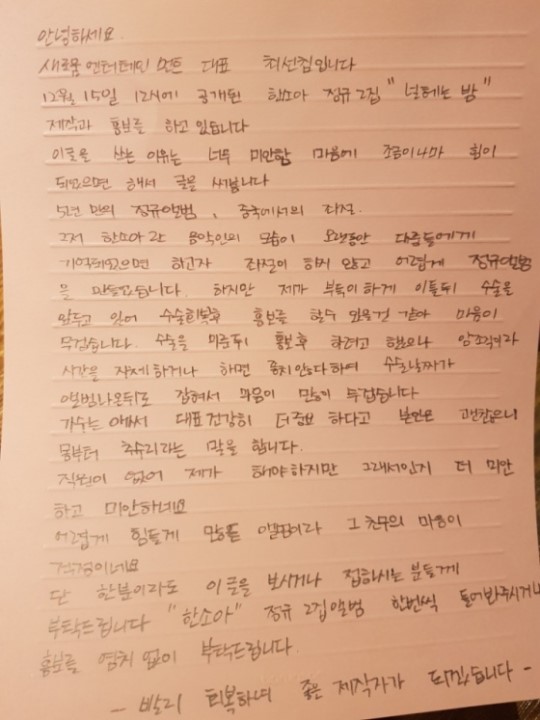 안녕하세요.
새로움 엔터테인먼트 대표 최선집입니다
12월 15일 12시에 공개된 한소아 정규 2집 "널 떼는 밤"
제작과 홍보를 하고 있습니다
이글을 쓰는 이유는 너무 미안함 마음에 조금이나마 힘이
되었으면 해서 글을 써봅니다
5년 만의 정규앨범, 중국에서의 좌절.
그저 한소아란 음악인의 모습이 오랫동안 대중들에게
기억되었으면 하고자 좌절이 하지 않고 어렵게 정규앨범
을 만들었습니다. 하지만 제가 부득이하게 이틀뒤 수술을
앞두고 있어 수술회복후 홍보를 할수 있을것 같아 마음이
무겁습니다. 수술을 미룬뒤 홍보후 하려고 했으나 암조직이라
시간을 지체하거나 하면 좋지않다하여 수술날짜가
앨범나온뒤로 잡혀서 마음이 많이 무겁습니다
가수는 앞에서 대표건강히 더중요 하다고 본인은 괜찮으니
몸부터 추수리라는 말을 합니다.
직원이 없어 제가 해야하지만 그래서인지 더 미안
하고 미안하네요
어렵게 힘들게 만든 앨범이라 그 친구의 마음이
걱정이네요
단 한분이라도 이글을 보시거나 접하시는 분들께
부탁드립니다 "한소아" 정규 2집앨범 한번씩 들어봐주시거나
홍보를 염치 없이 부탁드립니다.
- 빨리 회복하여 좋은 제작자가 되겠습니다 -